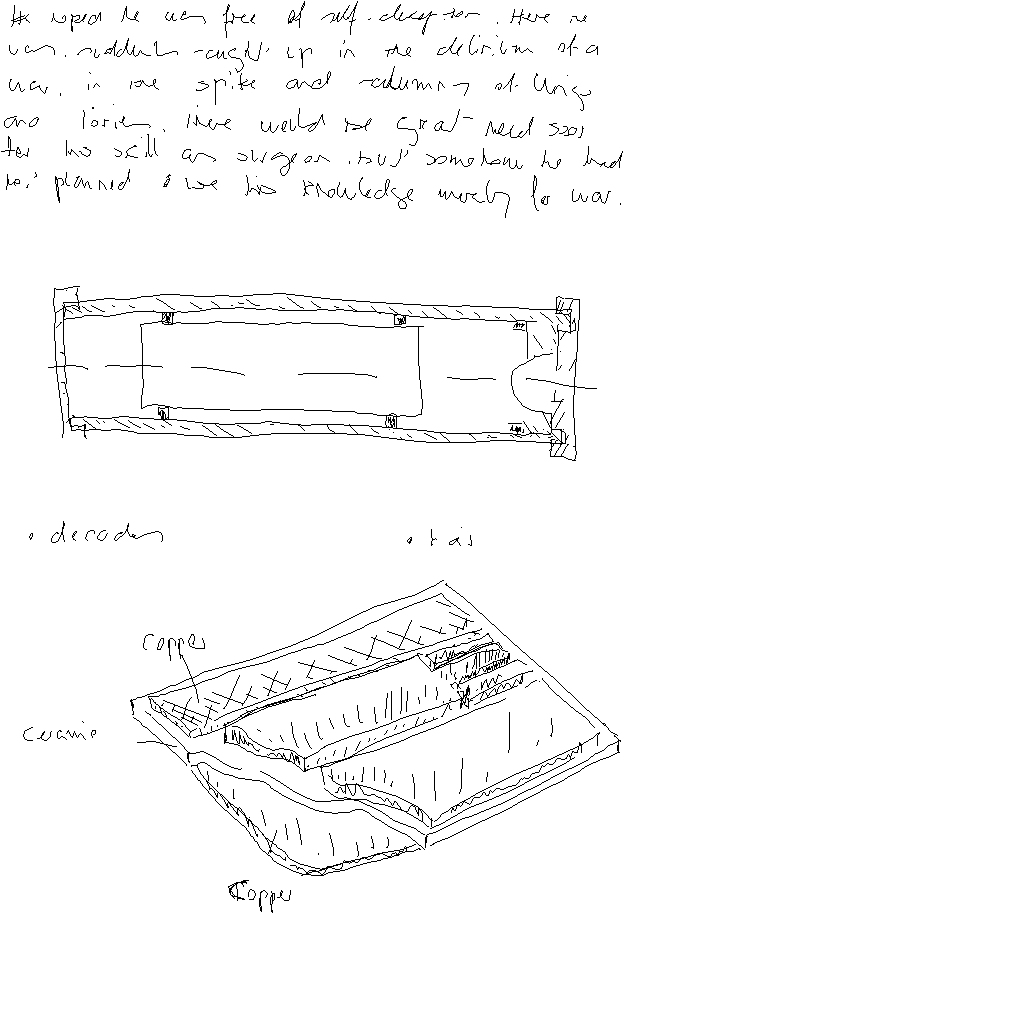 He hoped he was free of self-deception. Here he
was, suddenly caught up in the delirium of a
war, in the spite and calumny of Whigs
and Tories. There would be great need soon
for his skill as surgeon, but somehow he had
not planned to use his knowledge merely for war.
• decoders
• has
Copper
Ceramic
Copper